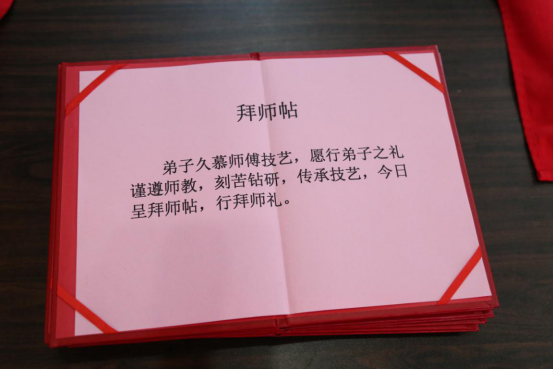 拜师帖
弟子久慕师傅技艺，愿行弟子之礼
谨遵师教，刻苦钻研，传承技艺，今日
呈拜师帖，行拜师礼。